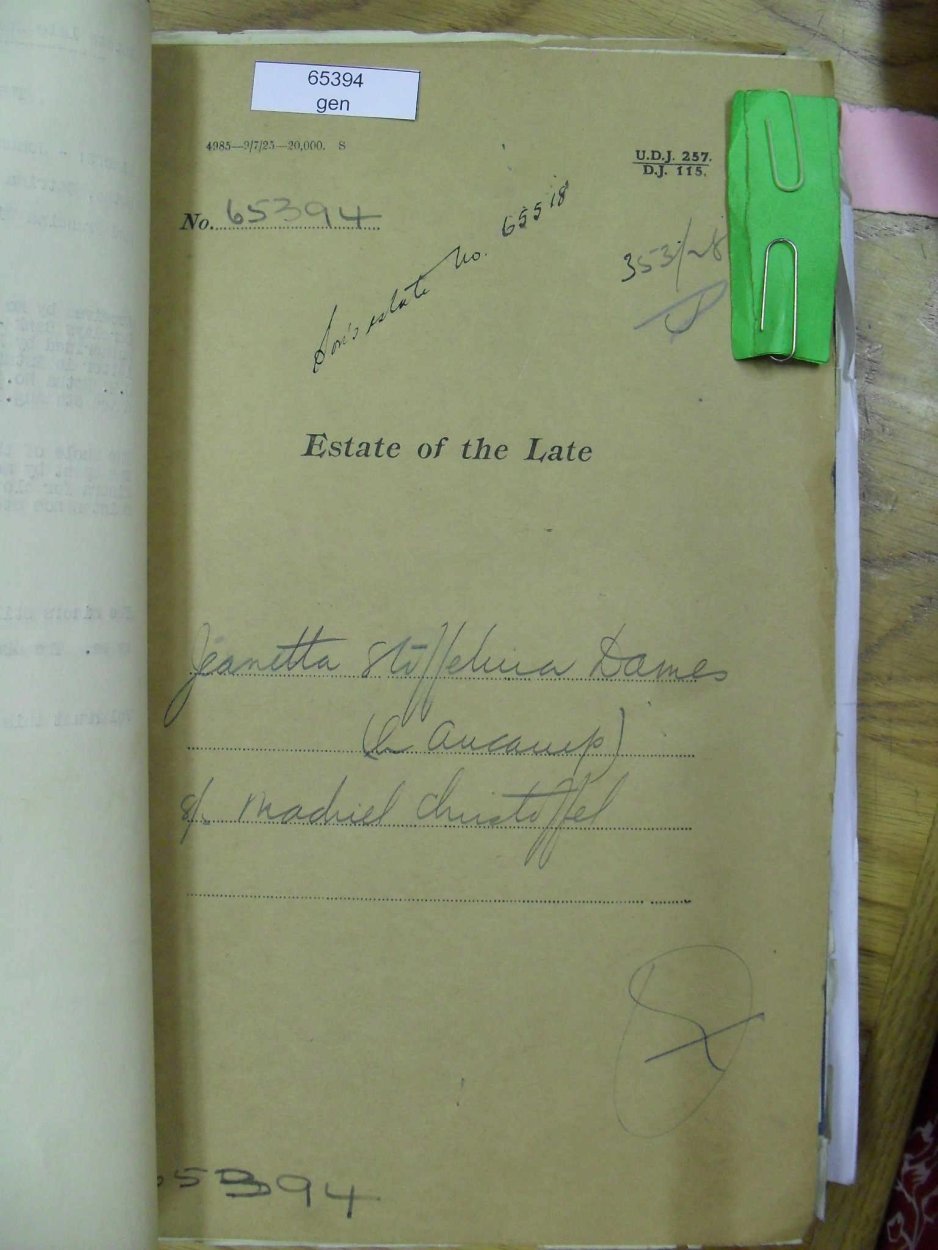 65394
gen
4985—9/7/25—20,000. S
U.D.J. 257.
D.J. 115.
No. 65394
Son's estate No. 65518
353/28
Estate of the Late
Jeanetta Stoffelina Dames
(b Aucamp)
s/. Machiel Christoffel
65394